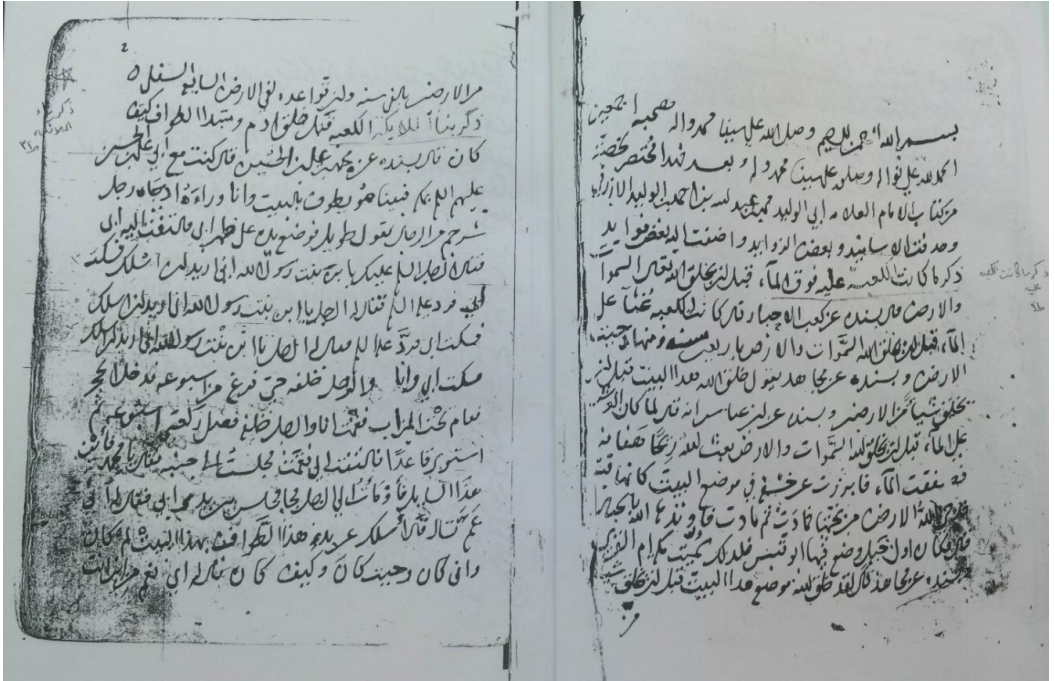 بسم الله الرحمن الرحيم وصلى الله على سيدنا محمد واله وصحبه اجمعين
الحمد لله على نواله وصلى على سيدنا محمد واله وبعد فهذا مختصر لخصته
من كتاب الامام العلامه ابي الوليد محمد بن عبد الله بن احمد بن الوليد الازرقي
وحذفت الاسانيد وبعض الزوايد واضفت اليه بعض فوايد
ذكر ما كانت الكعبة عليه فوق الماء قبل ان يخلق الله تعالى السموات
والارض قال بسنده عن كعب الاحبار قال كانت الكعبه غثآء على
الماء قبل ان يخلق الله السموات والارض باربعين سنه ومنها دحيت
الارض وبسنده عن مجاهد يقول خلق الله هذا البيت قبل ان
يخلق شيأ من الارضين وبسنده عن ابن عباس انه قال لما كان العرش
على الماء قبل ان يخلق الله السموات والارض بعث الله ريحا هفافه
فصفقت الماء فابرزت عن خشفة في موضع البيت كانها قبة
فدحى الله الارض من تحتها فمادت ثم مادت فاوتدها الله بالجبال
فكان اول جبل وضع فيها ابو قبيس فلذلك سميت مكه ام القرى
بسنده عن مجاهد قال لقد خلق الله موضع هذا البيت قبل ان يخلق شيئا
من
ذكر ما كانت الكعبه
٢
من الارضين بالفي سنه وان قواعده لفي الارض السابعه السفلى
ذكر بناء الملايكة الكعبه قبل خلق ادم ومبتدا الطواف كيف
كان قال بسنده عن محمد بن علي بن الحسين قال كنت مع ابي علي بن الحسين
عليهم السلام بمكه فبينما هو يطوف بالبيت وانا وراءه اذ جاءه رجل
شرجع من الرجال يقول طويل فوضع يده على ظهر ابي فالتفت اليه ابي
فقال الرجل السلام عليك يا ابن بنت رسول الله اني اريد ان اسئلك فسكت
ابي فرد عليه السلام فقال له الرجل يا ابن بنت رسول الله اني اريد ان اسئلك
فسكت ابي
فسكت ابي وانا والرجل خلفه حتى فرغ من اسبوعه فدخل الحجر
فقام تحت الميزاب فقمت انا والرجل خلفه فصلى ركعتي اسبوعه ثم
استوى قاعدا فالتفت الي فقمت فجلست الى جنبه فقال يا محمد فاين
هذا السايل فاومأت الى الرجل فجا فجلس بين يدي ابي فقال له ابي
عم تسال قال اسئلك عن بدء هذا الطواف بهذا البيت لم كان
واني كان وحيث كان وكيف كان فقال له ابي نعم من اين انت
ذكر بناء
الملائكة